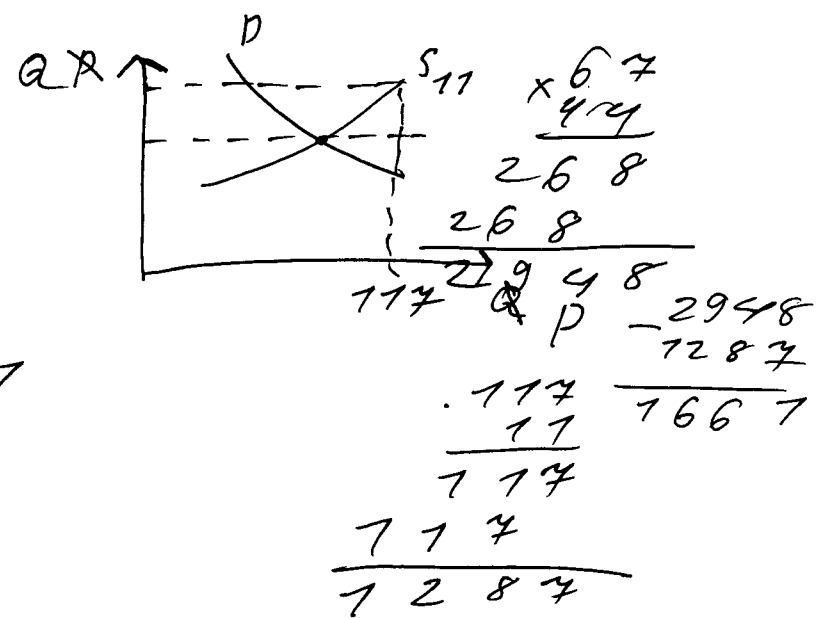 D
Q P S 11
117 Q P
× 67
44
268
268
2948
− 2948
1287
1661
. 117
11
117
117
1287